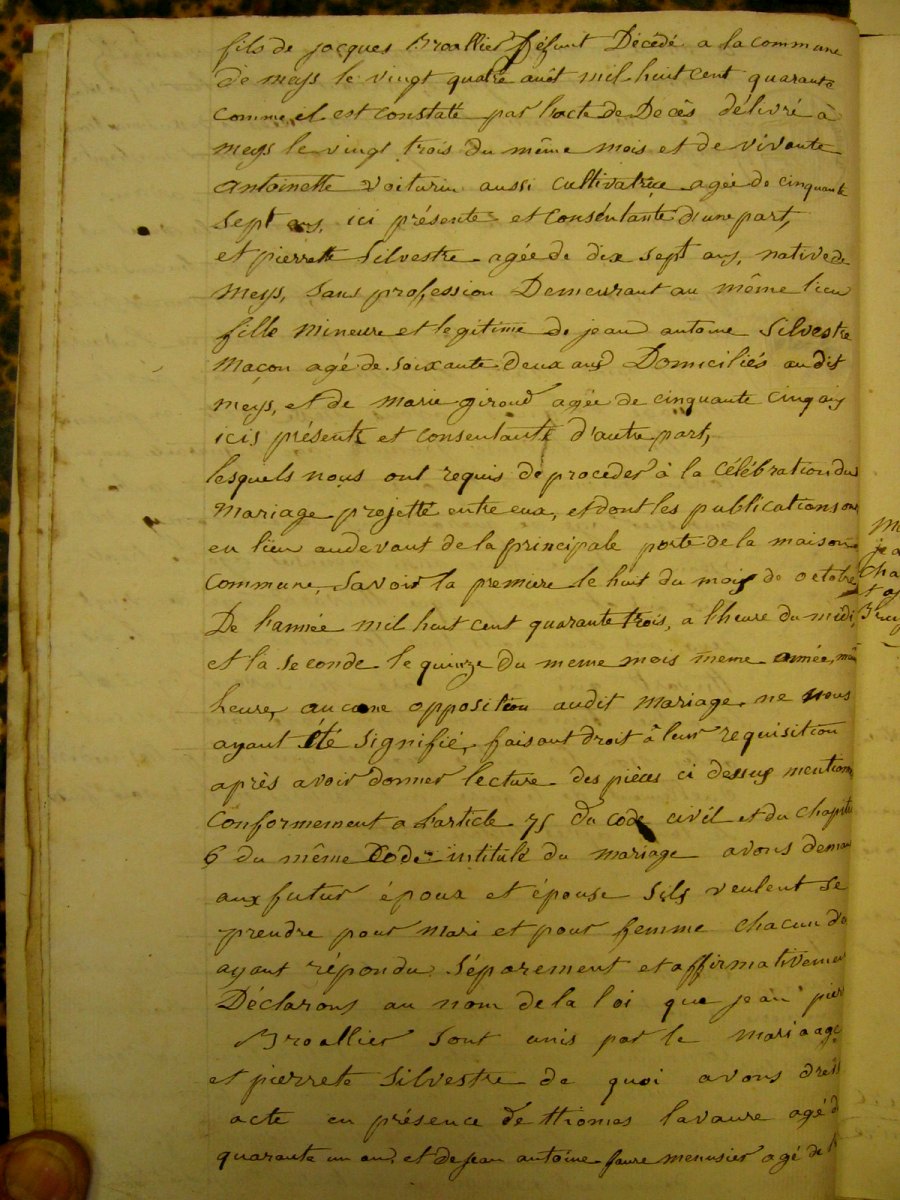 fils de jacques Broallier Défunt Décédé a la commune
de meys le vingt quatre aût mil huit cent quarante
comme il est constaté par l'acte de Decès délivré à
meys le vingt trois du même mois et de vivante
antoinette voiturin aussi cultivatrice agée de cinquante
sept ans, ici présente et consentante d'une part,
et pierrette Silvestre agée de dix sept ans, native de
meys, sans profession Demeurant au même lieu
fille mineure et legitime de jean antoine Silvestre
maçon agé de soixante deux ans Domiciliés audit
meys, et de marie giroud agée de cinquante cinq ans
icis présente et consentante d'autre part,
lesquels nous ont requis de proceder à la célébration du
mariage projetté entre eux, et dont les publications ont
eu lieu au devant de la principale porte de la maison
commune, Savoir la premiere le huit du mois de octobre
De l'année mil huit cent quarante trois, a l'heure du midi,
et la seconde le quinze du meme mois meme année, même
heure, aucune opposition audit mariage ne nous
ayant été signifié, faisant droit à leur requisition
après avoir donner lecture des pièces ci dessus mentionn
conformement a l'article 75 du code civil et du chapitre
6 du même Code intitulé du mariage avons deman
aux futur époux et épouse sils veulent se
prendre pour mari et pour femme chacun d'e
ayant répondu séparement et affirmativement
Déclarons au nom de la loi que jean pier
Broallier sont unis par le mariaage
et pierrete Silvestre de quoi avons dressé
acte en présence de thiomas lavaure agé d
quarante un ans, et de jean antoine faure menusier agé de